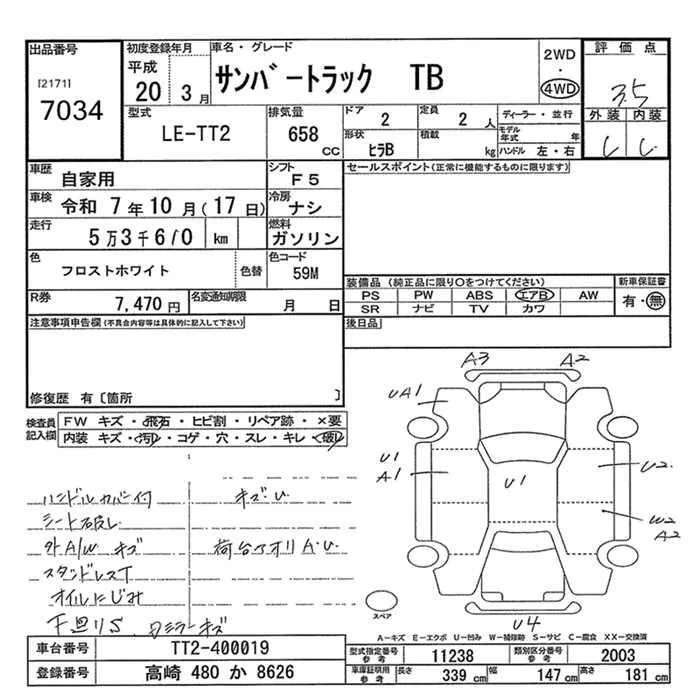 出品番号
[2171]
7034
初度登録年月
平成
20 3月
車名・グレード
サンバートラック TB
2WD
・
4WD
評価点
3.5
外装 内装
型式
LE-TT2
排気量
658
CC
ドア
2
定員
2 人
形状
ヒラB
積載
kg
ディーラー・並行
モデル年式 年
ハンドル 左・右
車歴
自家用
シフト
F5
車検
令和 7年10月(17日)
冷房
ナシ
走行
5万3千610 km
燃料
ガソリン
色
フロストホワイト
色替
色コード
59M
R券
7,470円
名変通知期限
月 日
セールスポイント(正常に機能するものに限ります)
装備品(純正品に限り○をつけてください)
PS PW ABS エアB AW
SR ナビ TV カワ
新車保証書
有・無
後日品
注意事項申告欄(不具合内容等は具体的に記入して下さい)
修復歴 有〔箇所 〕
検査員
記入欄
FW キズ・飛石・ヒビ割・リペア跡・×要
内装 キズ・汚れ・コゲ・穴・スレ・キレ・破れ
ハンドルカバー付 キズU
シート破し
外A/W キズ 荷台アオリA・U
スタッドレスT
オイルにじみ
下回りS Dミラーキズ
A3 A2
UA1
U1
A1
U1
U2
W2
A2
U4
スペア
A-キズ E-エクボ U-凹み W-補修跡 S-サビ C-腐食 XX-交換済
車台番号
TT2-400019
登録番号
高崎 480 か 8626
型式指定番号
参考
11238
類別区分番号
参考
2003
車庫証明用
参考
長さ
339 cm
幅
147 cm
高さ
181 cm